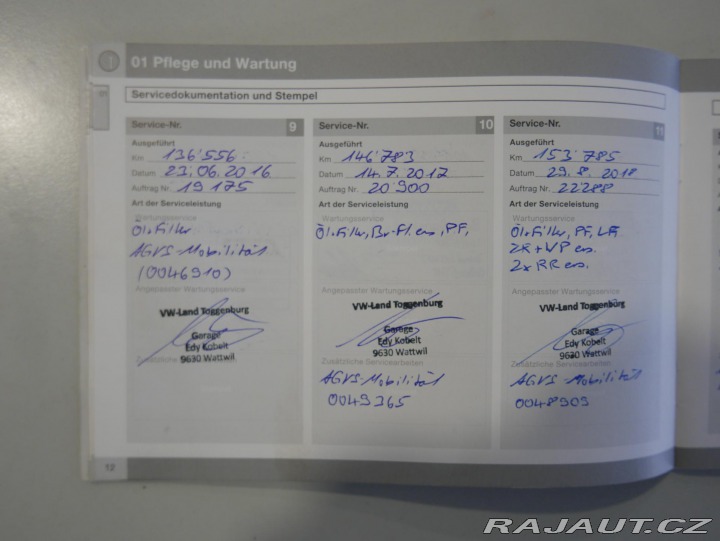 01 Pflege und Wartung
Servicedokumentation und Stempel
Service-Nr. 9
Ausgeführt
Km 136'556
Datum 23.06.2016
Auftrag Nr. 19175
Art der Serviceleistung
Wartungsservice
Öl+Filter
AGVS-Mobilität
(0046910)
Angepasster Wartungsservice
VW-Land Toggenburg
Garage
Edy Kobelt
9630 Wattwil
Zusätzliche
12
Service-Nr. 10
Ausgeführt
Km 146'783
Datum 14.7.2017
Auftrag Nr. 20'900
Art der Serviceleistung
Wartungsservice
Öl+Filter, Br-Fl. ers, PF,
Angepasster Wartungsservice
VW-Land Toggenburg
Garage
Edy Kobelt
9630 Wattwil
Zusätzliche Servicearbeiten
AGVS-Mobilität
0049365
Service-Nr. 11
Ausgeführt
Km 153'785
Datum 29.8.2018
Auftrag Nr. 22288
Art der Serviceleistung
Wartungsservice
Öl+Filter, PF, LF
ZR+WP ers.
2x RR ers.
Angepasster Wartungsservice
VW-Land Toggenburg
Garage
Edy Kobelt
9630 Wattwil
Zusätzliche Servicearbeiten
AGVS-Mobilität
0048909
RAJAUT.CZ